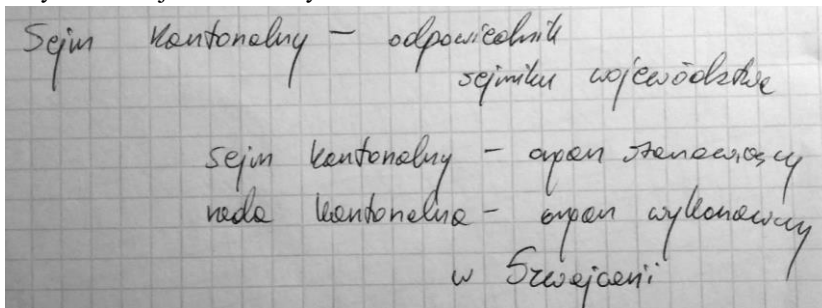 Sejm kantonalny - odpowiednik
sejmiku województwa
sejm kantonalny - organ stanowiący
rada kantonalna - organ wykonawczy
w Szwajcarii